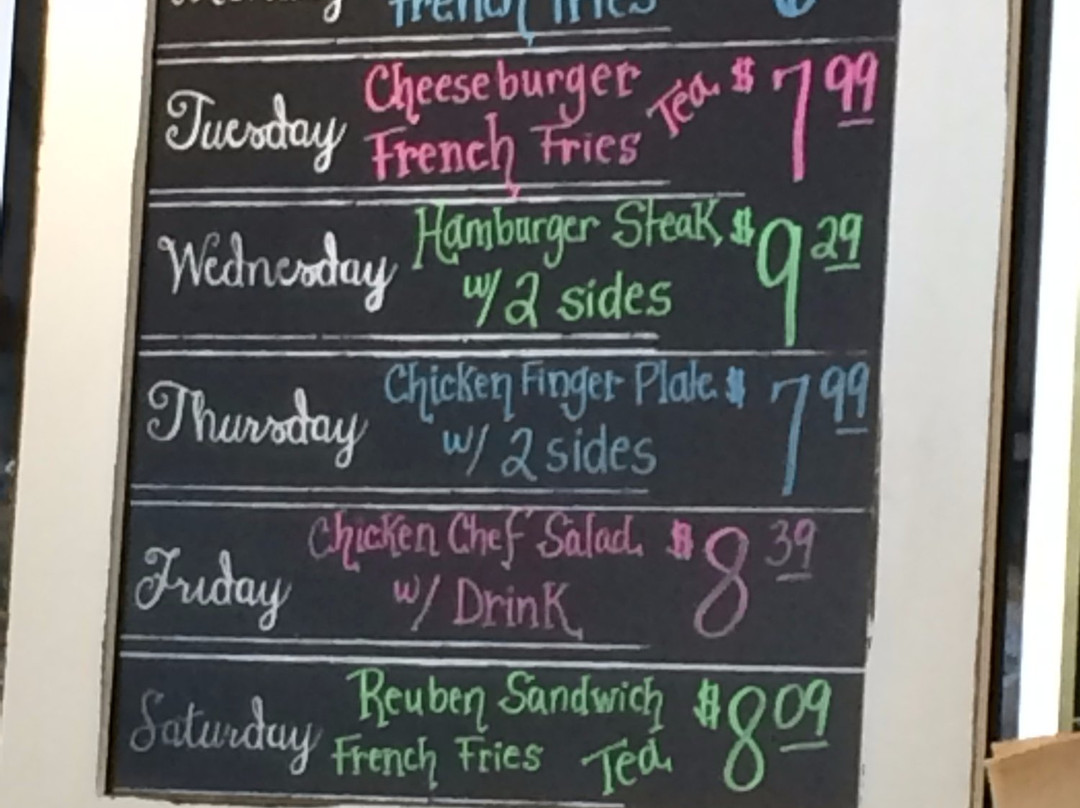 French Fries
Tuesday Cheeseburger French Fries Tea $7.99
Wednesday Hamburger Steak $9.29
w/ 2 sides
Thursday Chicken Finger Plate $7.99
w/ 2 sides
Friday Chicken Chef Salad $8.39
w/ Drink
Saturday Reuben Sandwich $8.09
French Fries Tea